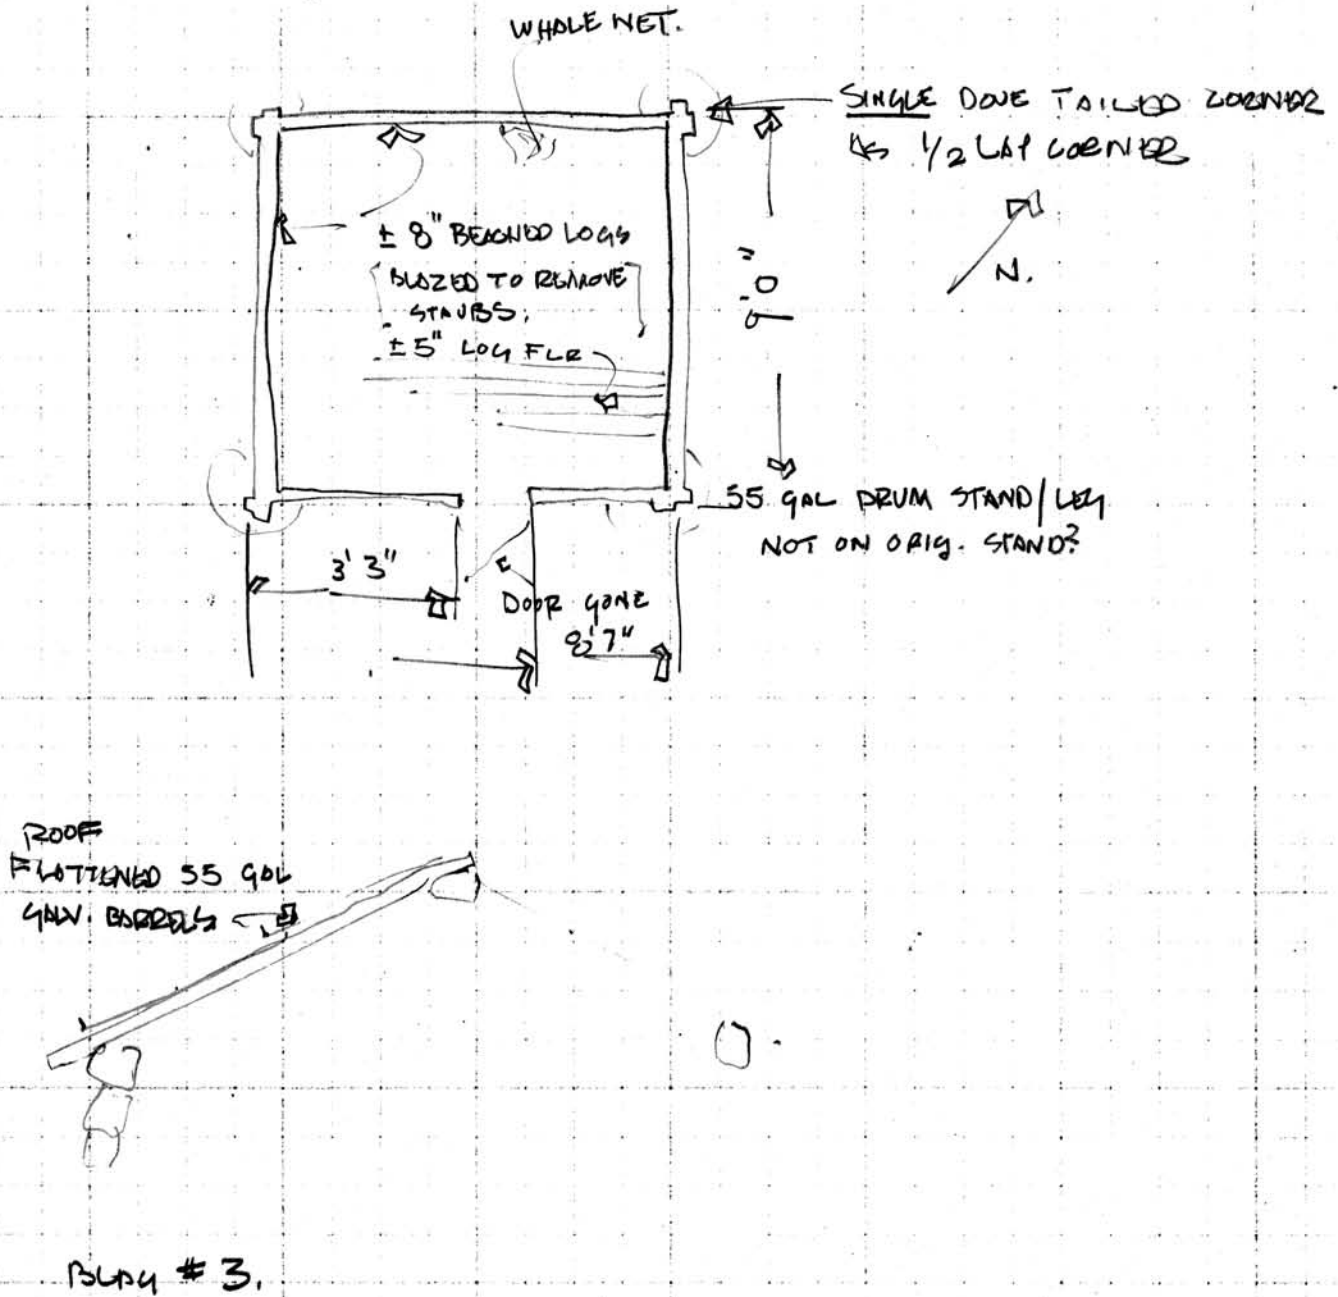 WHALE NET.
SINGLE DOVE TAILED CORNER
1/2 LAP CORNER
N.
± 8" BEACHED LOGS
BLAZED TO REMOVE
STAUBS.
± 5" LOG FLR
9'-0"
55 GAL DRUM STAND/LEG
NOT ON ORIG. STAND?
3' 3"
DOOR GONE
8'7"
ROOF
FLATTENED 55 GAL
GALV. BARRELS
BLDG # 3.